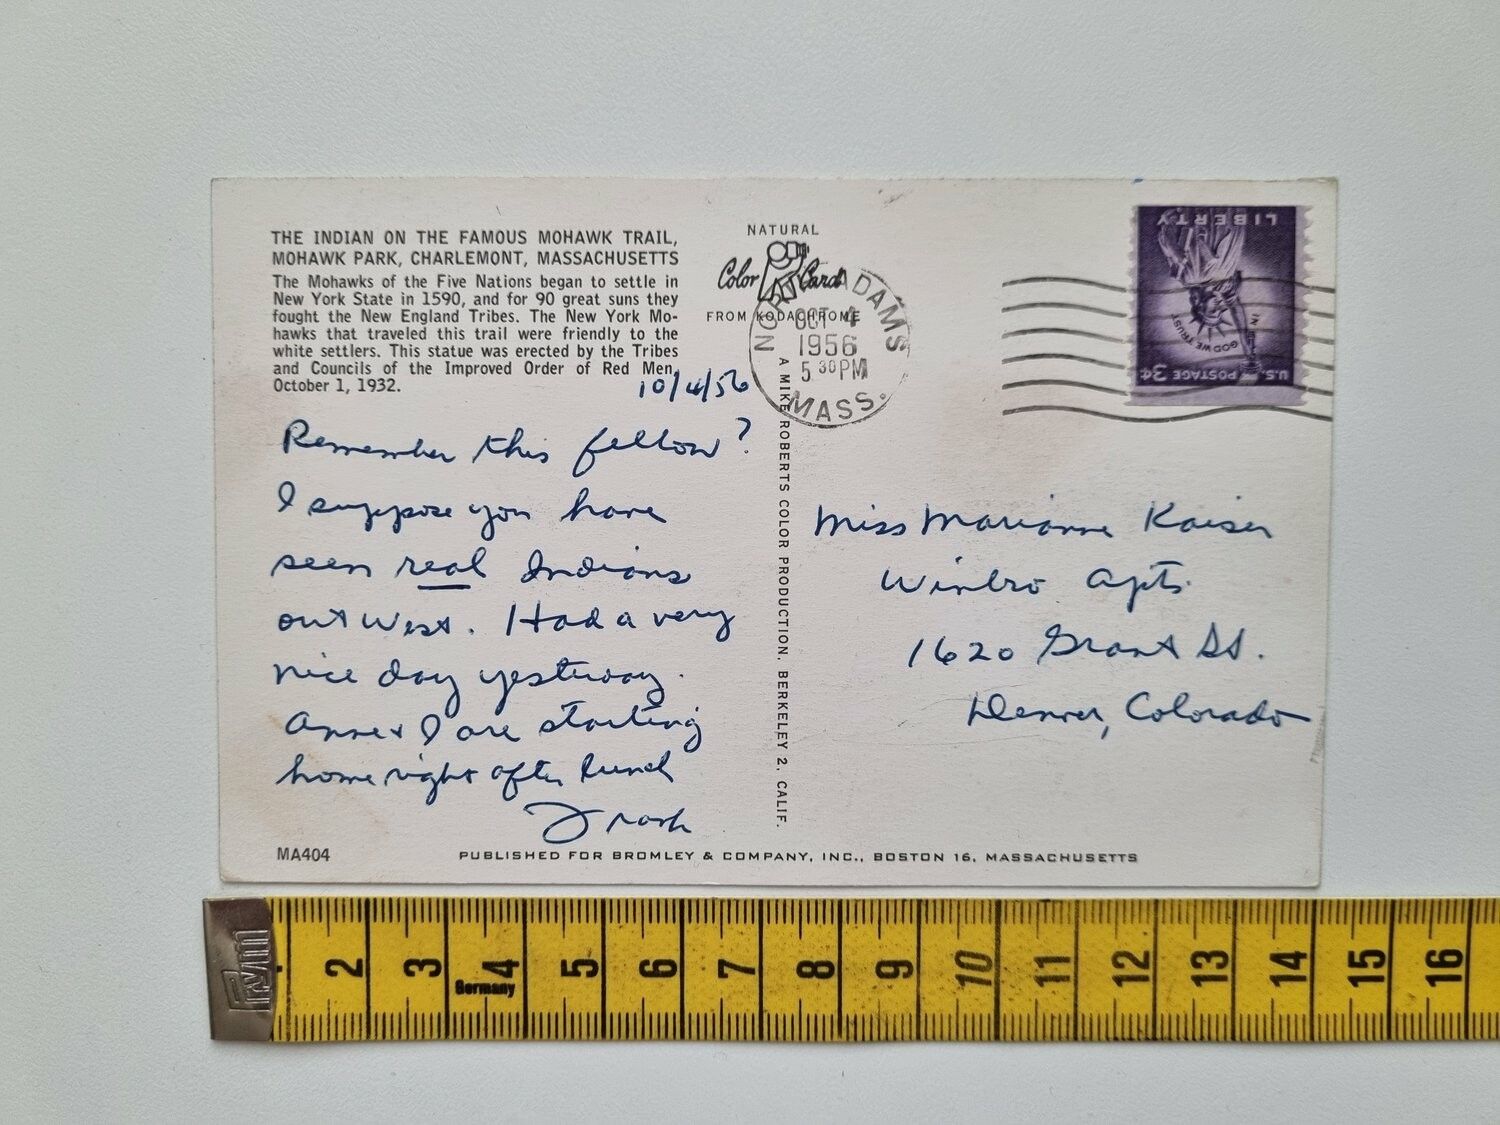 THE INDIAN ON THE FAMOUS MOHAWK TRAIL,
MOHAWK PARK, CHARLEMONT, MASSACHUSETTS
The Mohawks of the Five Nations began to settle in
New York State in 1590, and for 90 great suns they
fought the New England Tribes. The New York Mo-
hawks that traveled this trail were friendly to the
white settlers. This statue was erected by the Tribes
and Councils of the Improved Order of Red Men,
October 1, 1932.
10/4/56
Remember this fellow?
I suppose you have
seen real Indians
out West. Had a very
nice day yesterday.
Anne & I are starting
home right after lunch
MA404
NATURAL
Color Card
FROM KODACHROME
A MIKE ROBERTS COLOR PRODUCTION, BERKELEY 2, CALIF.
NORTH ADAMS
OCT 4
1956
5 30 PM
MASS.
LIBERTY
IN GOD WE TRUST
U.S. POSTAGE 3¢
Miss Marianne Kaiser
Winbro Apts.
1620 Grant St.
Denver, Colorado
PUBLISHED FOR BROMLEY & COMPANY, INC., BOSTON 16, MASSACHUSETTS
Prym
Germany
2 3 4 5 6 7 8 9 10 11 12 13 14 15 16